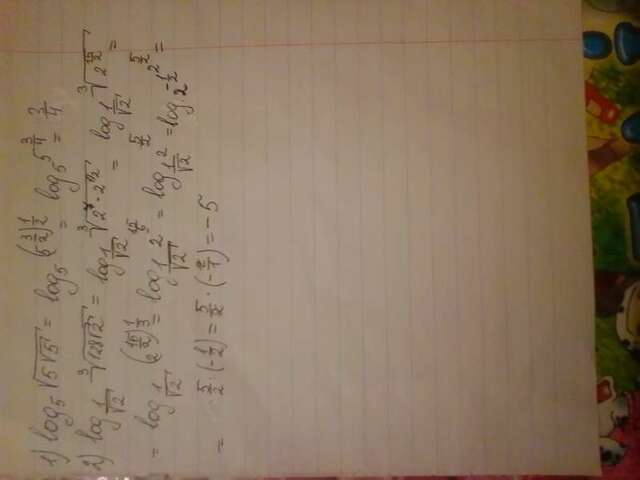 1) log₅ √(5√5) = log₅ (5^(3/2))^(1/2) = log₅ 5^(3/4) = 3/4
2) log_(1/√2) ∛(128√2) = log_(1/√2) ∛(2⁷ · 2^(1/2)) = log_(1/√2) ∛(2^(15/2)) =
= log_(1/√2) (2^(15/2))^(1/3) = log_(1/√2) 2^(15/6) = log_(1/√2) 2^(5/2) = log_(2^(-1/2)) 2^(5/2) =
= 5/2 · (-1/2) = 5/2 · (-2/1) = -5